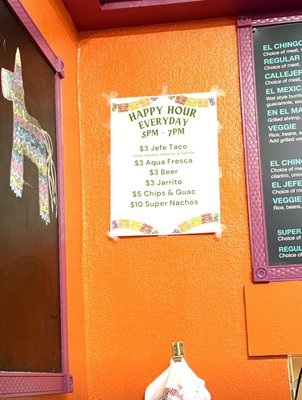 HAPPY HOUR
EVERYDAY
5PM - 7PM
$3 Jefe Taco
$3 Aqua Fresca
$3 Beer
$3 Jarrito
$5 Chips & Guac
$10 Super Nachos
EL CHINGO
Choice of meat,
REGULAR
Choice of meat,
CALLEJE
EL MEXIC
EN EL MA
Grilled shrimp,
VEGGIE
Rice, beans,
Add grilled veg
EL CHING
Choice of mea
cilantro, onio
EL JEFE
Choice of me
VEGGIE
Rice, beans,
SUPER
Choice of
REGUL
Choice of